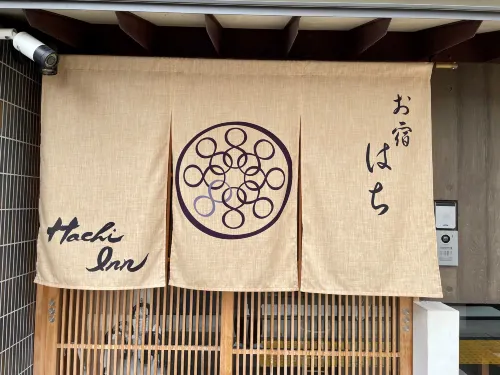 お宿
はち
Hachi
Inn